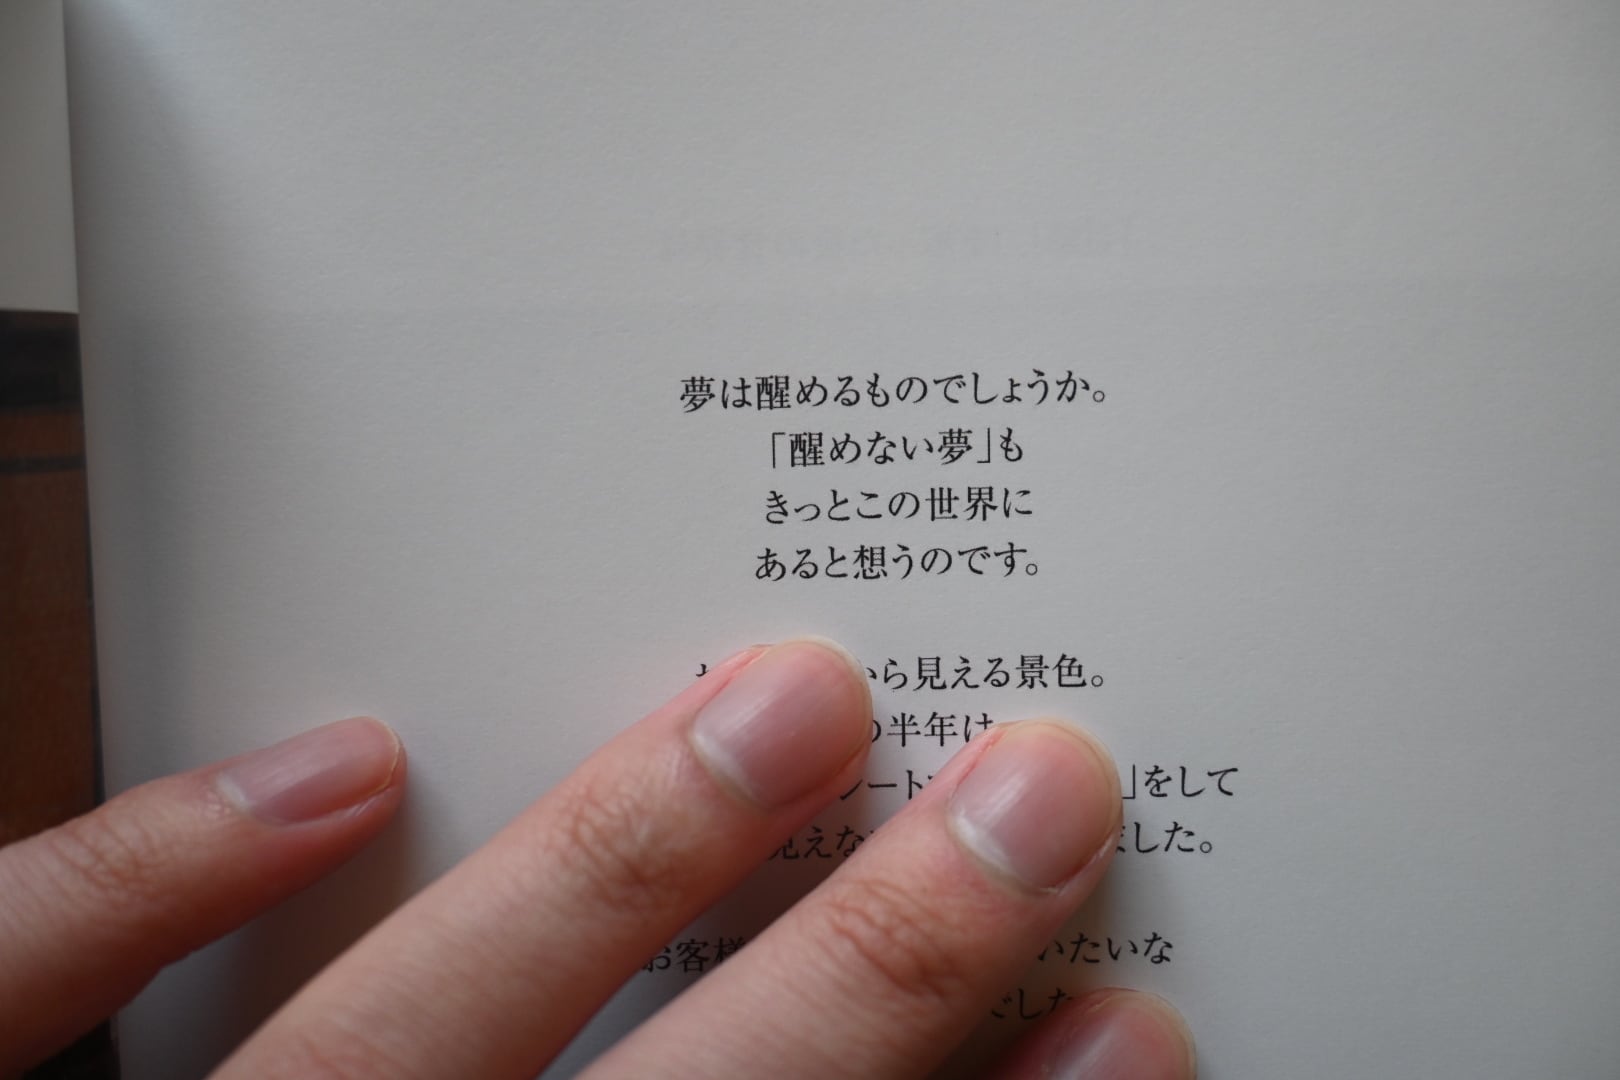 夢は醒めるものでしょうか。
「醒めない夢」も
きっとこの世界に
あると想うのです。
から見える景色。
の半年は
ート
」をして
見えな
ました。
お客様
いたいな
ごした